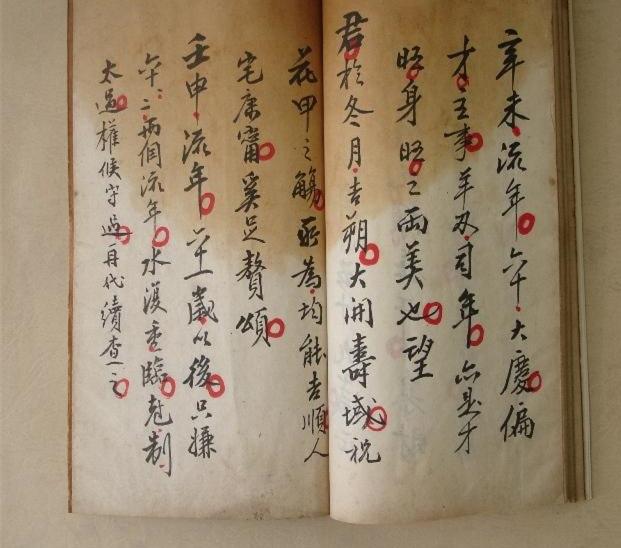 辛未流年六十大慶偏
才主事羊刃司年亦是才
旺身旺之兩美也望
君於冬月吉朔大開壽域祝
花甲之觴所為均能吉順人
宅康甯奚足贅頌
壬申流年卄一歲以後只嫌
六十二兩個流年水渡重臨尅制
太過權候守過再代續查之